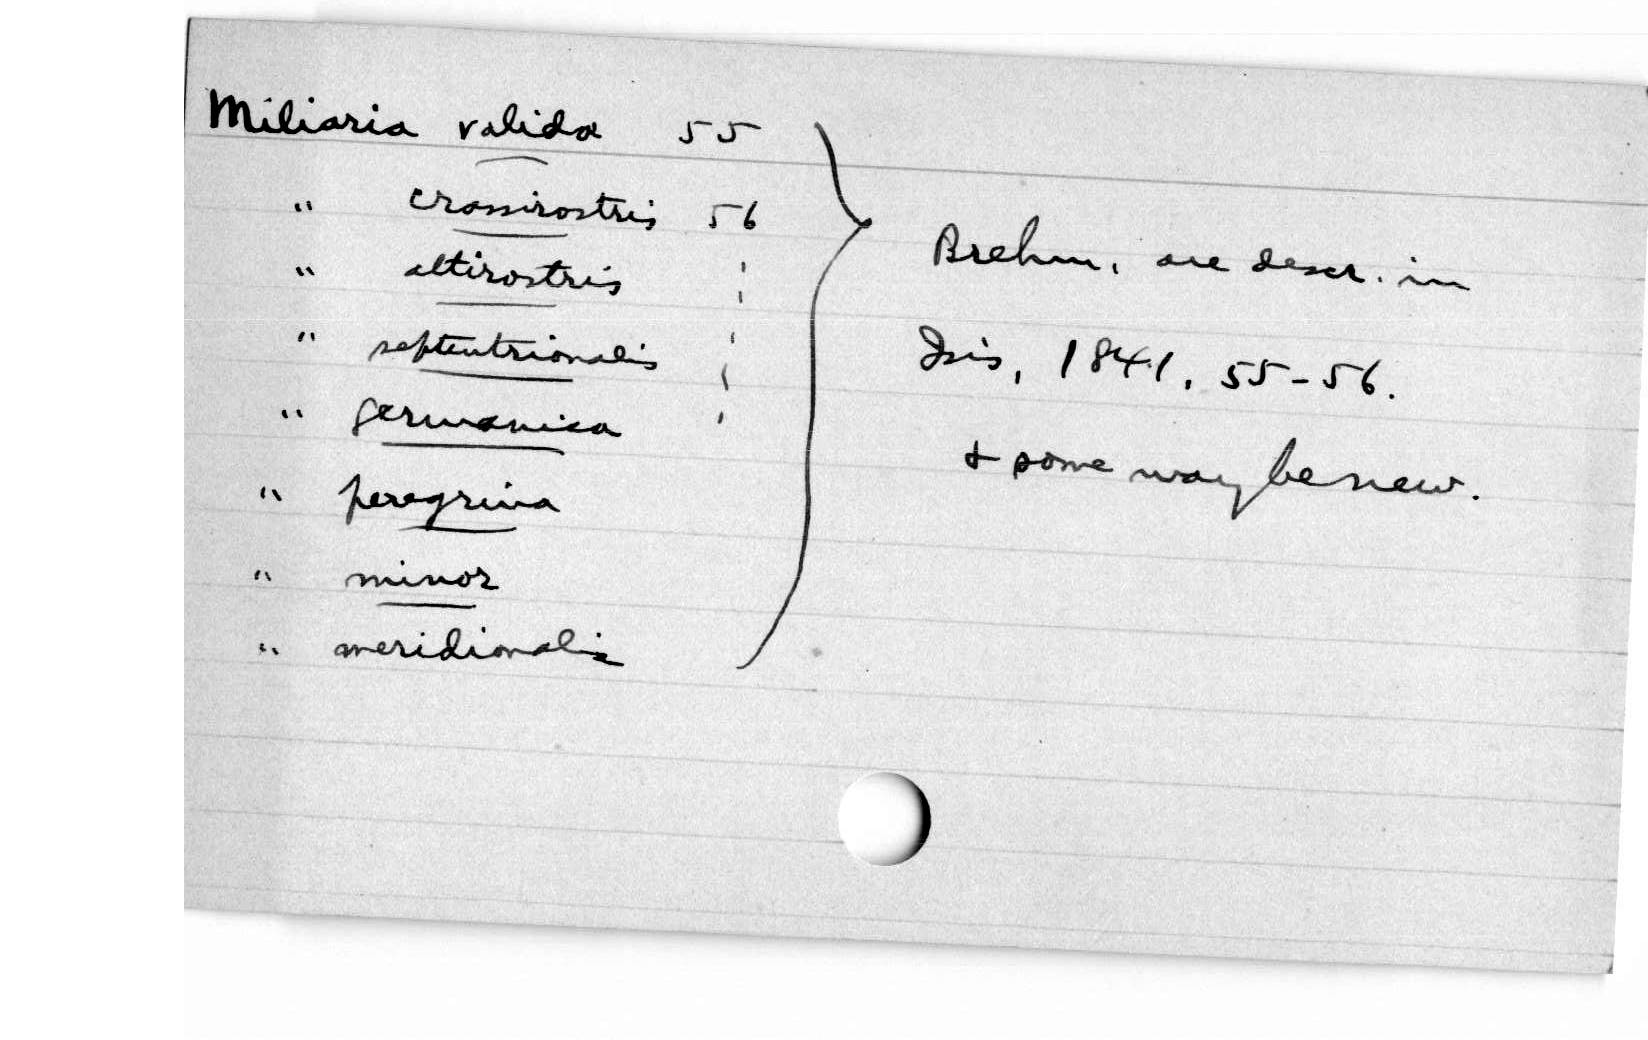 Miliaria valida 55
" crassirostris 56
" altirostris '
" septentrionalis '
" germanica '
" peregrina
" minor
" meridionalis
Brehm, are descr. in
Isis, 1841, 55-56.
& some may be new.